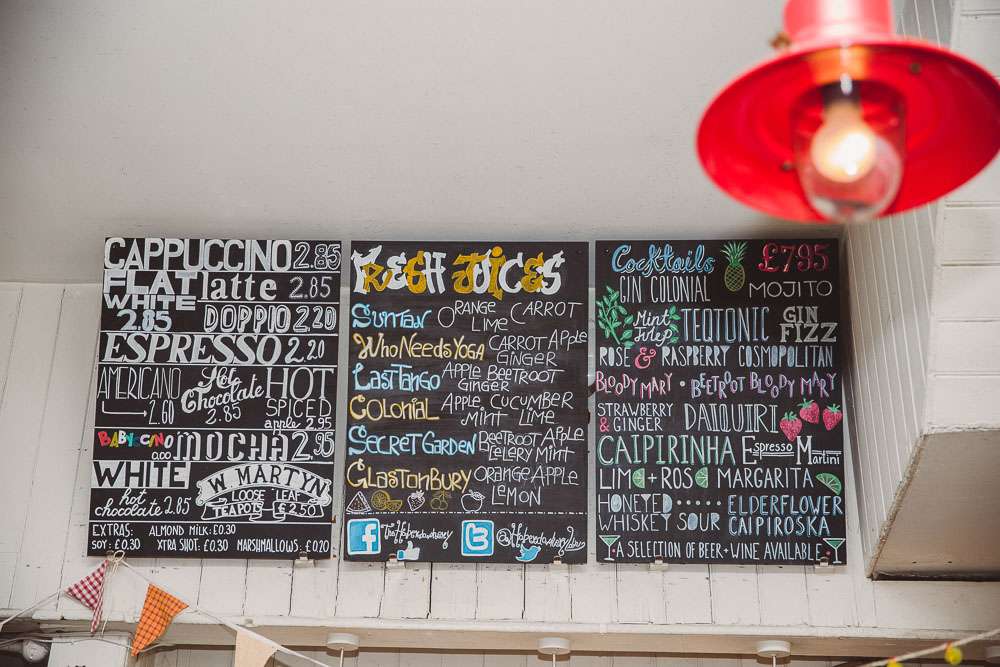 CAPPUCCINO 2.85
FLAT WHITE 2.85
latte 2.85
DOPPIO 2.20
ESPRESSO 2.20
AMERICANO 2.60
Hot Chocolate 2.85
HOT SPICED apple 2.95
BABYCCINO 0.00
MOCHA 2.95
WHITE hot chocolate 2.85
W. MARTYN
LOOSE LEAF
TEAPOTS £2.50
EXTRAS: ALMOND MILK: £0.30
SOY: £0.30 XTRA SHOT: £0.30 MARSHMALLOWS: £0.20
FRESH JUICES
SUNTAN ORANGE CARROT LIME
WHO NEEDS YOGA CARROT APPLE GINGER
LAST TANGO APPLE BEETROOT GINGER
COLONIAL APPLE CUCUMBER MINT LIME
SECRET GARDEN BEETROOT APPLE CELERY MINT
GLASTONBURY ORANGE APPLE LEMON
f
t
Cocktails £7.95
GIN COLONIAL MOJITO
Mint Julep TEQTONIC GIN FIZZ
ROSE & RASPBERRY COSMOPOLITAN
BLOODY MARY • BEETROOT BLOODY MARY
STRAWBERRY & GINGER DAIQUIRI
CAIPIRINHA Espresso Martini
LIM + ROS MARGARITA
HONEYED WHISKEY SOUR
ELDERFLOWER CAIPIROSKA
A SELECTION OF BEER + WINE AVAILABLE